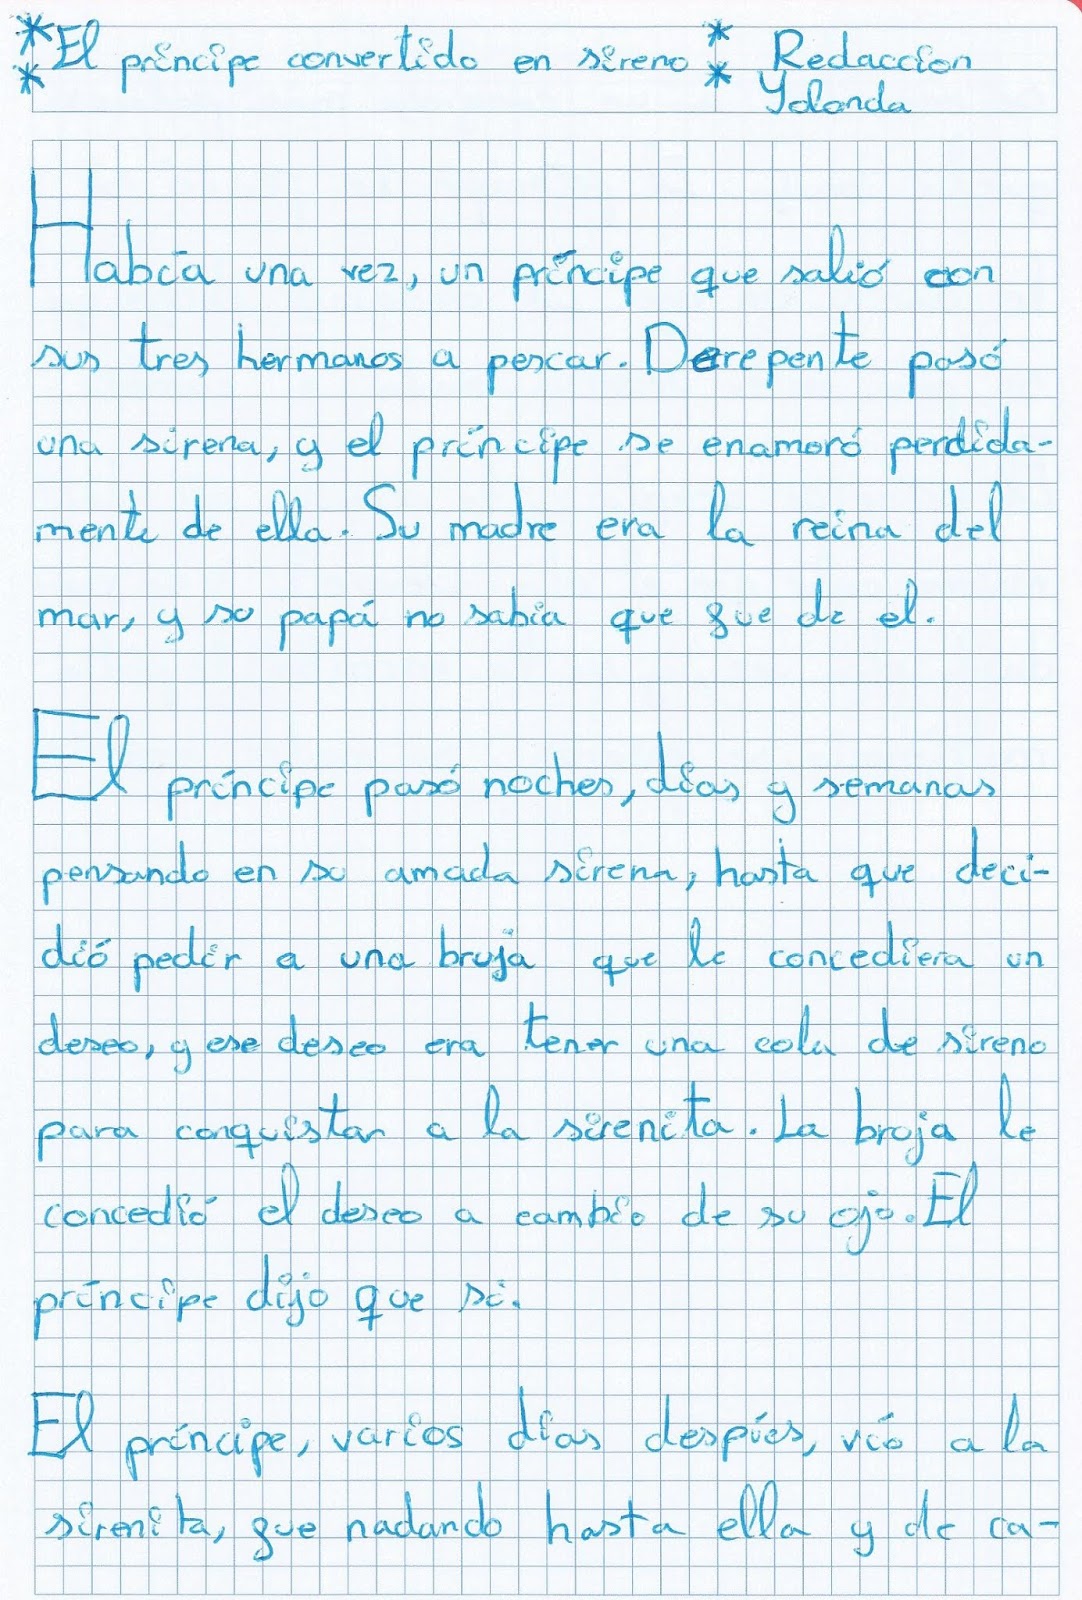 El príncipe convertido en sireno
Redaccion
Yolanda
Había una vez, un príncipe que salió con
sus tres hermanos a pescar. Derepente pasó
una sirena, y el príncipe se enamoró perdida-
mente de ella. Su madre era la reina del
mar, y su papá no sabía que fue de el.
El príncipe pasó noches, días y semanas
pensando en su amada sirena, hasta que deci-
dió pedir a una bruja que le concediera un
deseo, y ese deseo era tener una cola de sireno
para conquistar a la sirenita. La bruja le
concedió el deseo a cambio de su ojo. El
príncipe dijo que si.
El príncipe, varios días despúes, vió a la
sirenita, fue nadando hasta ella y de ca-